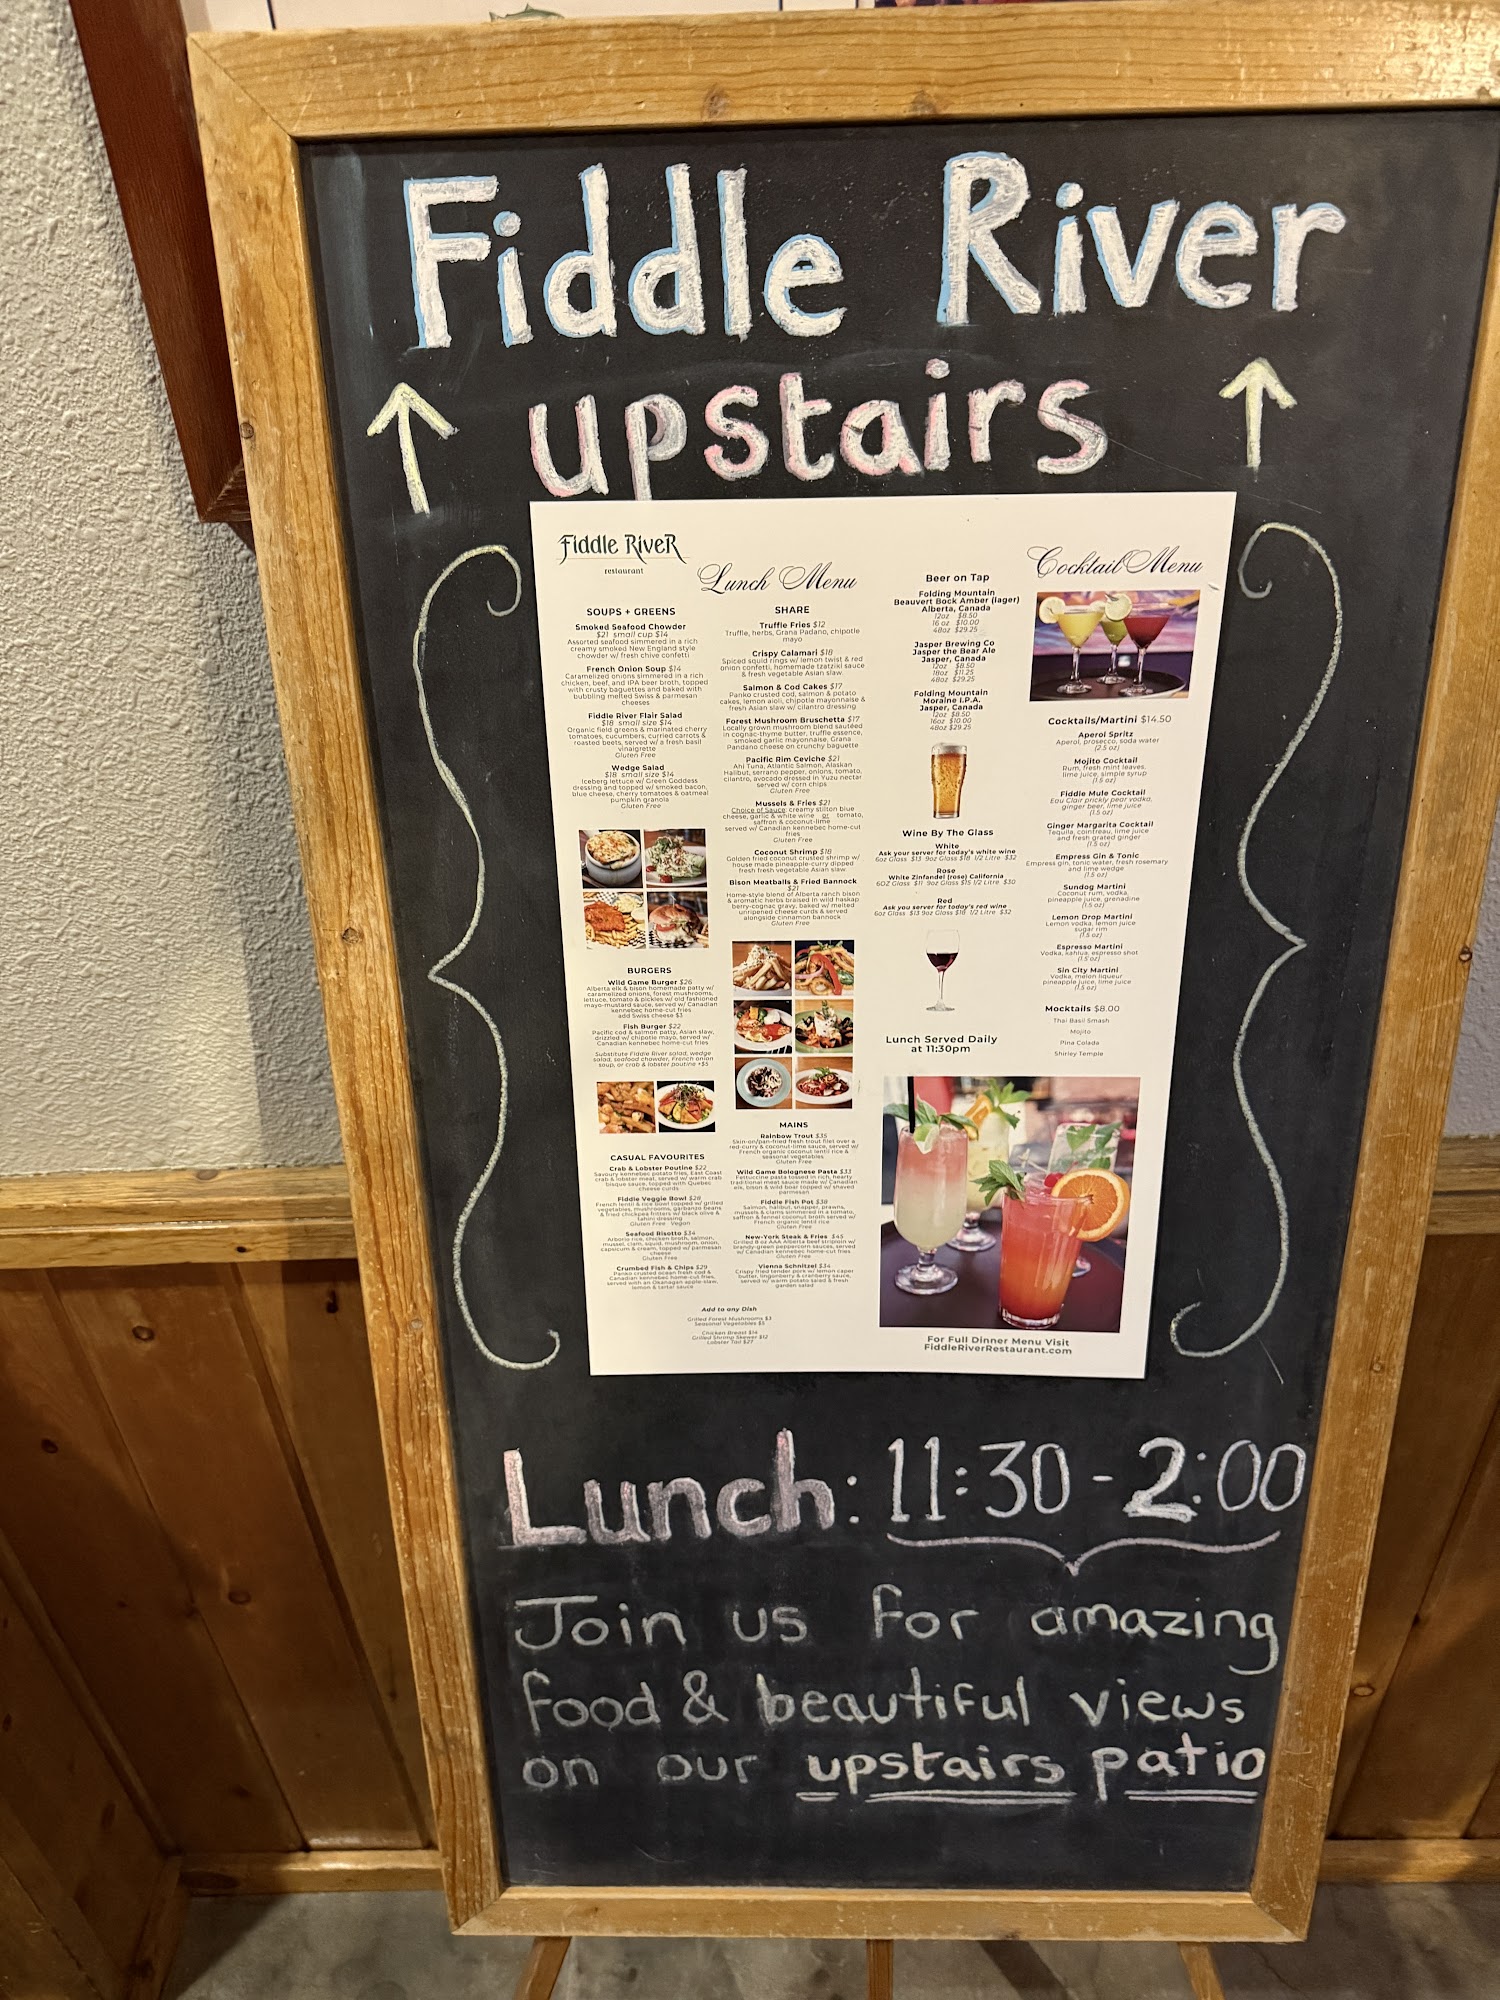 Fiddle River
upstairs
Fiddle River
restaurant
Lunch Menu
SOUPS + GREENS
Smoked Seafood Chowder
$21 small cup $14
Assorted seafood simmered in a rich
creamy smoked New England style
chowder w/ fresh chive confetti
French Onion Soup $14
Caramelized onions simmered in a rich
chicken, beef, and IPA beer broth, topped
with crusty baguettes and baked with
bubbling melted Swiss & parmesan
cheeses
Fiddle River Flair Salad
$18 small size $14
Organic field greens & marinated cherry
tomatoes, cucumbers, curried carrots &
roasted beets, served w/ a fresh basil
vinaigrette
Gluten Free
Wedge Salad
$18 small size $14
Iceberg lettuce w/ Green Goddess
dressing and topped w/ smoked bacon,
blue cheese, cherry tomatoes & oatmeal
pumpkin granola
Gluten Free
BURGERS
Wild Game Burger $26
Alberta elk & bison homemade patty w/
caramelized onions, forest mushrooms,
lettuce, tomato & pickles w/ old fashioned
mayo-mustard sauce, served w/ Canadian
kennebec home-cut fries
add Swiss cheese $3
Fish Burger $22
Pacific cod & salmon patty, Asian slaw,
drizzled w/ chipotle mayo, served w/
Canadian kennebec home-cut fries
Substitute Fiddle River salad, wedge
salad, seafood chowder, French onion
soup, or crab & lobster poutine +$5
CASUAL FAVOURITES
Crab & Lobster Poutine $22
Savoury kennebec potato fries, East Coast
crab & lobster meat, served w/ warm crab
bisque sauce, topped with Quebec
cheese curds
Fiddle Veggie Bowl $28
French lentil & rice bowl topped w/ grilled
vegetables, mushrooms, garbanzo beans
& fried chickpea fritters w/ black olive &
tahini dressing
Gluten Free Vegan
Seafood Risotto $34
Arborio rice, chicken broth, salmon,
mussel, clam, squid, mushroom, onion,
capsicum & cream, topped w/ parmesan
cheese
Gluten Free
Crumbed Fish & Chips $29
Panko crusted ocean fresh cod &
Canadian kennebec home-cut fries,
served with an Okanagan apple-slaw,
lemon & tartar sauce
SHARE
Truffle Fries $12
Truffle, herbs, Grana Padano, chipotle
mayo
Crispy Calamari $18
Spiced squid rings w/ lemon twist & red
onion confetti, homemade tzatziki sauce
& fresh vegetable Asian slaw
Salmon & Cod Cakes $17
Panko crusted cod, salmon & potato
cakes, lemon aioli, chipotle mayonnaise &
fresh Asian slaw w/ cilantro dressing
Forest Mushroom Bruschetta $17
Locally grown mushroom blend sautéed
in cognac-thyme butter, truffle essence,
smoked garlic mayonnaise, Grana
Pandano cheese on crunchy baguette
Pacific Rim Ceviche $21
Ahi Tuna, Atlantic Salmon, Alaskan
Halibut, serrano pepper, onions, tomato,
cilantro, avocado dressed in Yuzu nectar
served w/ corn chips
Gluten Free
Mussels & Fries $21
Choice of Sauce: creamy stilton blue
cheese, garlic & white wine or tomato,
saffron & coconut-lime
served w/ Canadian kennebec home-cut
fries
Gluten Free
Coconut Shrimp $18
Golden fried coconut crusted shrimp w/
house made pineapple-curry dipped
fresh fresh vegetable Asian slaw
Bison Meatballs & Fried Bannock
$21
Home-style blend of Alberta ranch bison
& aromatic herbs braised in wild haskap
berry-cognac gravy, baked w/ melted
unripened cheese curds & served
alongside cinnamon bannock
Gluten Free
MAINS
Rainbow Trout $35
Skin-on/pan-fried fresh trout filet over a
red-curry & coconut-lime sauce, served w/
French organic coconut lentil rice &
seasonal vegetables
Gluten Free
Wild Game Bolognese Pasta $33
Fettuccine pasta tossed in rich, hearty
traditional meat sauce made w/ Canadian
elk, bison & wild boar topped w/ shaved
parmesan
Fiddle Fish Pot $38
Salmon, halibut, snapper, prawns,
mussels & clams simmered in a tomato,
saffron & fennel coconut broth served w/
French organic lentil rice
Gluten Free
New-York Steak & Fries $45
Grilled 8 oz AAA Alberta beef striploin w/
brandy-green peppercorn sauces, served
w/ Canadian kennebec home-cut fries
Gluten Free
Vienna Schnitzel $34
Crispy fried tender pork w/ lemon caper
butter, lingonberry & cranberry sauce,
served w/ warm potato salad & fresh
garden salad
Add to any Dish
Grilled Forest Mushrooms $3
Seasonal Vegetables $5
Chicken Breast $14
Grilled Shrimp Skewer $12
Lobster Tail $27
Beer on Tap
Folding Mountain
Beauvert Bock Amber (lager)
Alberta, Canada
12oz $8.50
16 oz $10.00
48oz $29.25
Jasper Brewing Co
Jasper the Bear Ale
Jasper, Canada
12oz $8.50
18oz $11.25
48oz $29.25
Folding Mountain
Moraine I.P.A.
Jasper, Canada
12oz $8.50
16oz $10.00
48oz $29.25
Wine By The Glass
White
Ask your server for today's white wine
6oz Glass $13 9oz Glass $18 1/2 Litre $32
Rose
White Zinfandel (rose) California
6OZ Glass $11 9oz Glass $15 1/2 Litre $30
Red
Ask you server for today's red wine
6oz Glass $13 9oz Glass $18 1/2 Litre $32
Lunch Served Daily
at 11:30pm
Cocktail Menu
Cocktails/Martini $14.50
Aperol Spritz
Aperol, prosecco, soda water
(2.5 oz)
Mojito Cocktail
Rum, fresh mint leaves,
lime juice, simple syrup
(1.5 oz)
Fiddle Mule Cocktail
Eau Clair prickly pear vodka,
ginger beer, lime juice
(1.5 oz)
Ginger Margarita Cocktail
Tequila, cointreau, lime juice
and fresh grated ginger
(1.5 oz)
Empress Gin & Tonic
Empress gin, tonic water, fresh rosemary
and lime wedge
(1.5 oz)
Sundog Martini
Coconut rum, vodka,
pineapple juice, grenadine
(1.5 oz)
Lemon Drop Martini
Lemon vodka, lemon juice
sugar rim
(1.5 oz)
Espresso Martini
Vodka, kahlua, espresso shot
(1.5 oz)
Sin City Martini
Vodka, melon liqueur
pineapple juice, lime juice
(1.5 oz)
Mocktails $8.00
Thai Basil Smash
Mojito
Pina Colada
Shirley Temple
For Full Dinner Menu Visit
FiddleRiverRestaurant.com
Lunch: 11:30 - 2:00
Join us for amazing
food & beautiful views
on our upstairs patio